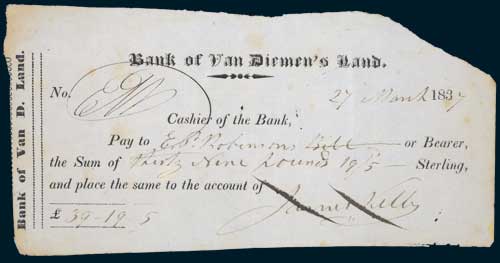 Bank of Van Diemen's Land.
Bank of Van D. Land.
No.
27 March 1837
Cashier of the Bank,
Pay to E. P. Robinsons Bill or Bearer,
the Sum of Thirty Nine pounds 19/5 Sterling,
and place the same to the account of
£ 39-19 5
James Kelly